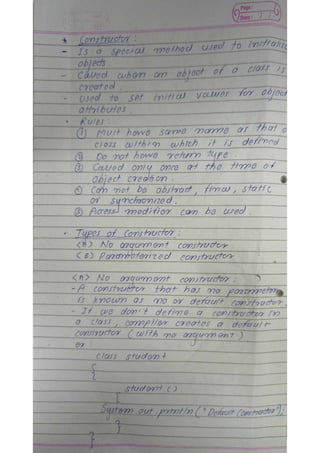 Page:
Date: / /
* Constructor :
- Is a special method used to initialise
objects
- Called when an object of a class is
created.
- used to set initial values for object
attributes.
• Rules :
① Must have same name as that o
class within which it is defined
② Do not have return type.
③ Called only once at the time of
Object creation.
④ Can not be abstract, final, static
or synchronized.
⑤ Access modifier can be used.
• Types of Constructor :
(A) No argument constructor
(B) Parameterized constructor
(A) No argument constructor :
- A constructor that has no parameter
is known as no or default constructor.
- If we don't define a constructor in
a class, compiler creates a default
constructor (with no argument)
class student
{
{
student ()
{
System.out.println("Default Constructor");
}
}